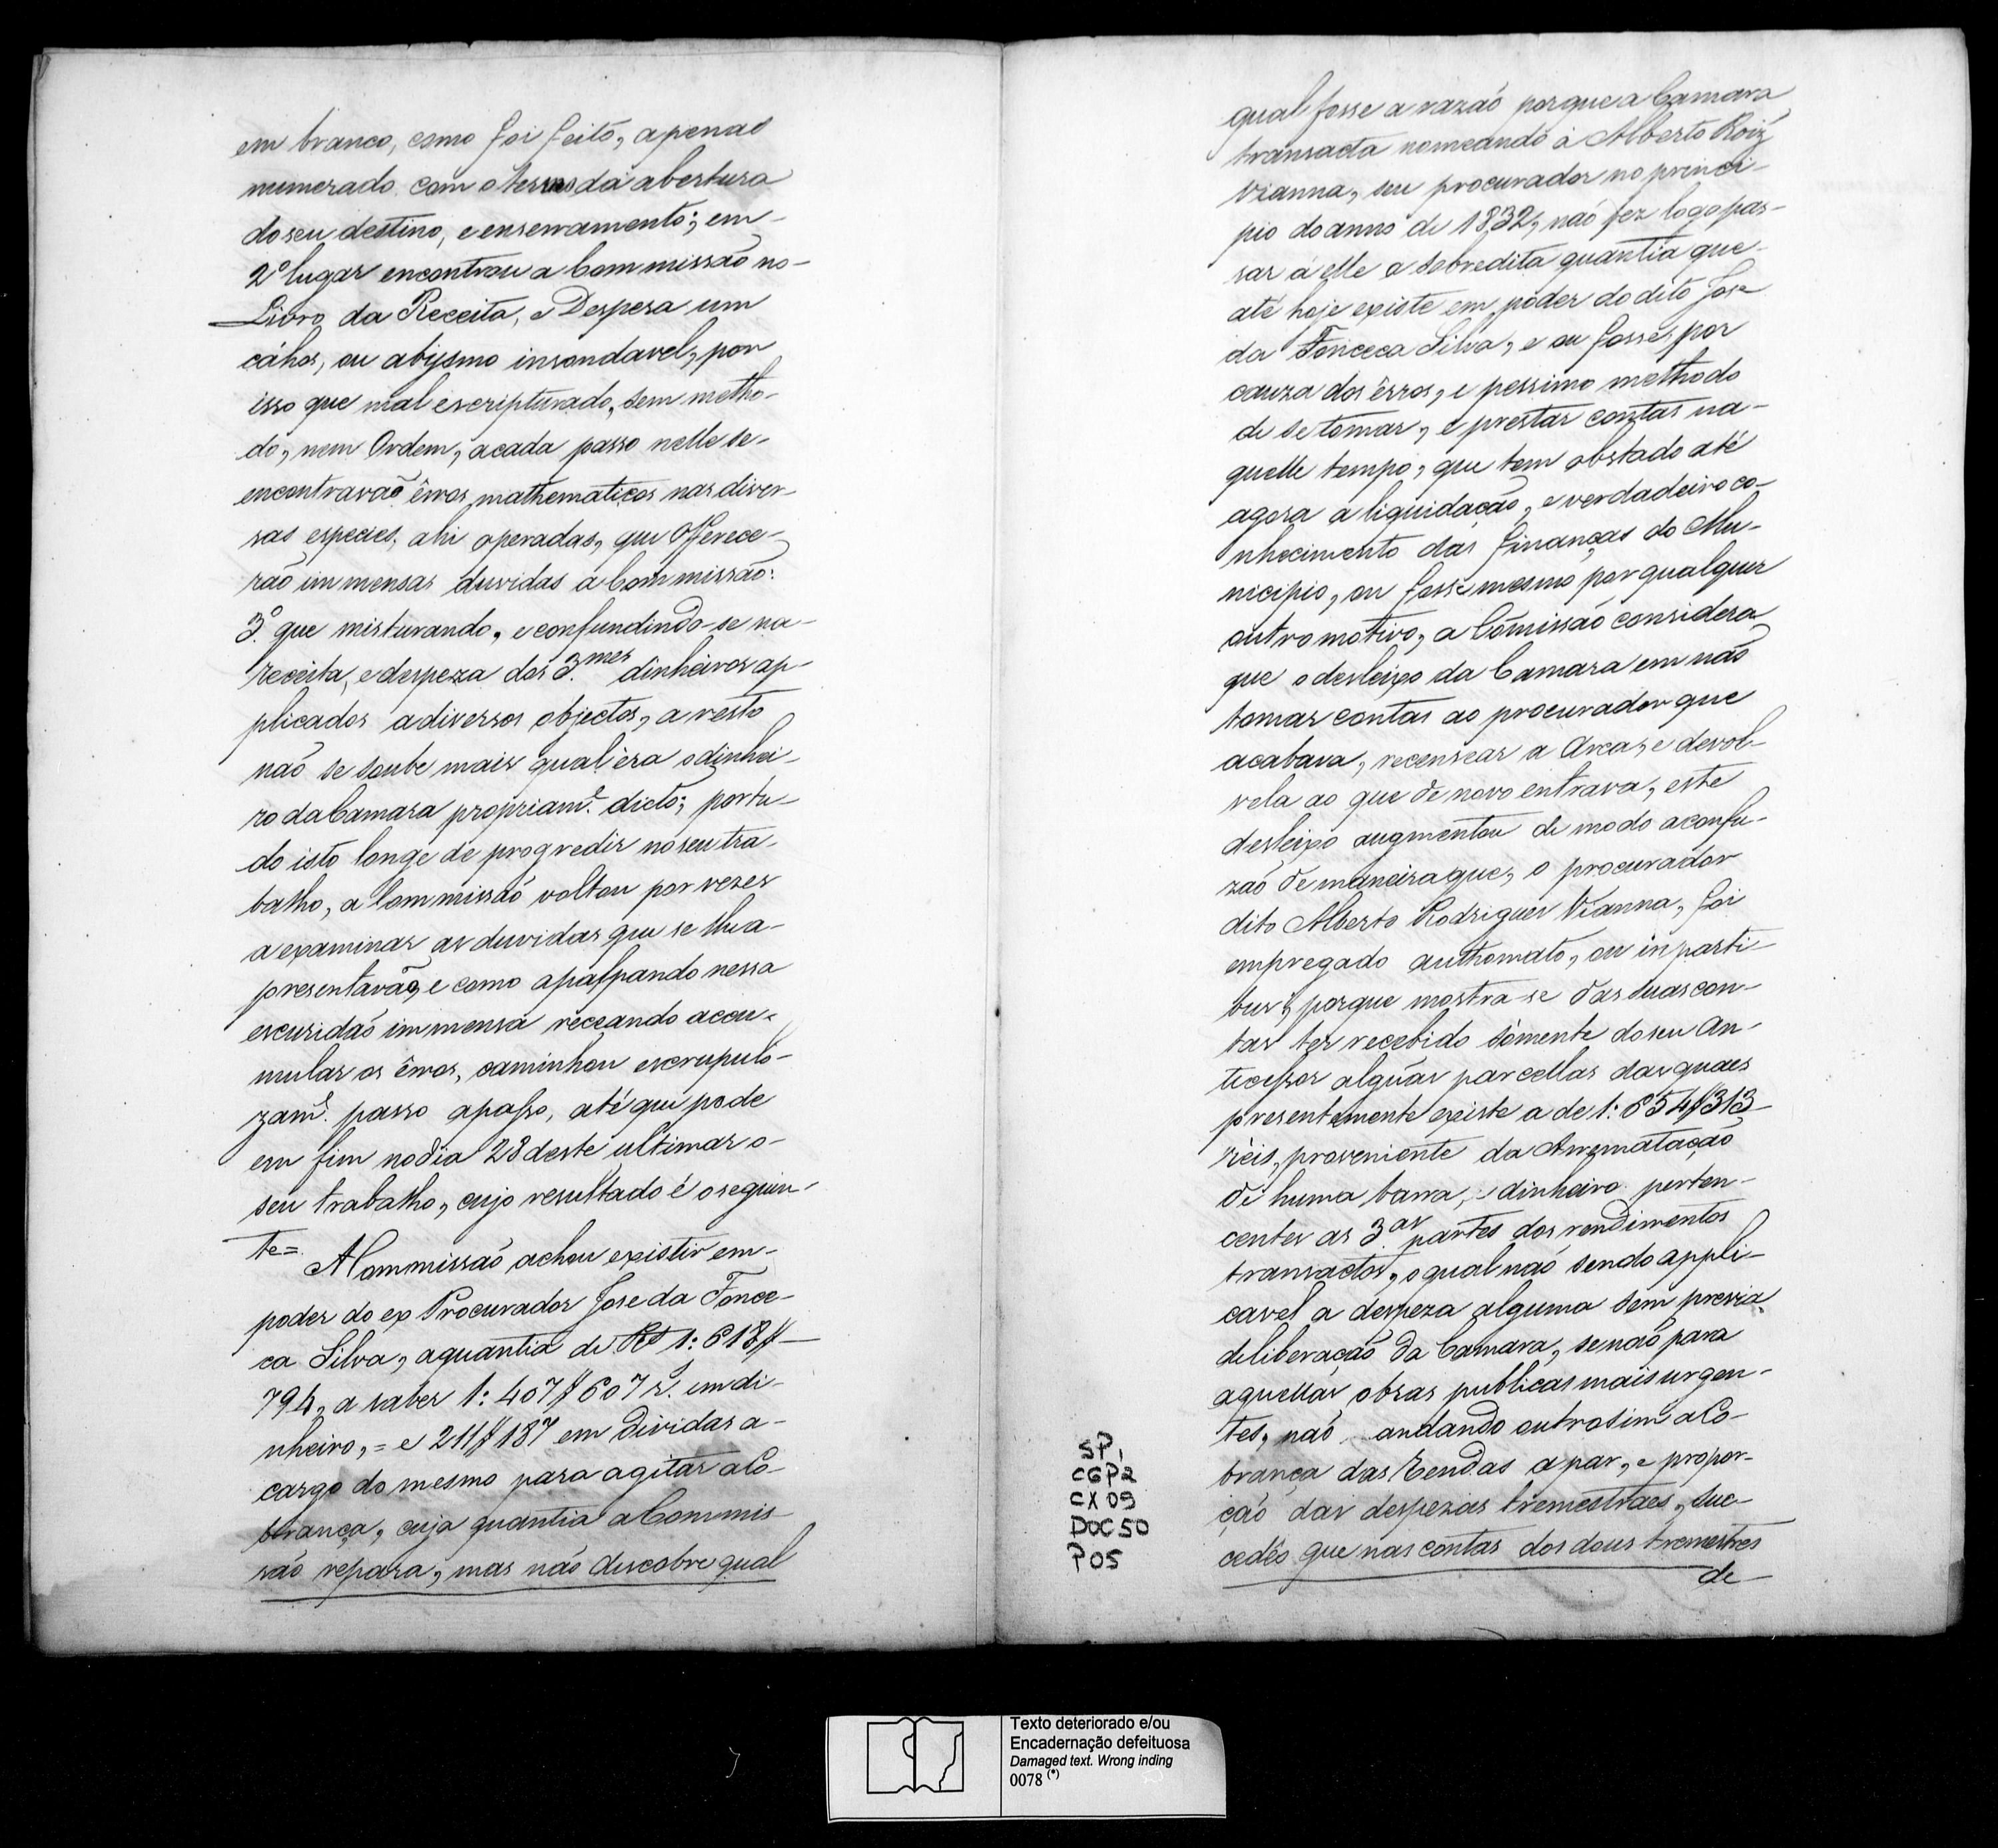 em branco, como foi feito, apenas
numerado com o termo da abertura
do seu destino, e enserramento; em
2º lugar encontrou a Commissão no
Livro da Receita, e Despesa um
cáhos, ou abysmo insondavel, por
isso que mal escripturado, sem metho-
do, nem Ordem, acada passo nelle se-
encontravaõ êrros mathematicos nas diver-
sas especies, ahi operadas, que Offerece-
rão immensas duvidas a Commissão:
3º que misturando, e confundindo-se na-
receita, e despeza dos 3.mes dinheiros ap-
plicados a diversos objectos, a resto
naõ se soube mais qual éra o dinhei-
ro da Camara propriam.e dicto; portu-
do isto longe de progredir no seu tra-
balho, a Commissaõ voltou por vezes
a examinar as duvidas que se lhe a-
presentavaõ, e como apalpando nessa
escuridaõ immensa receando accu-
mular os êrros, caminhou escrupulo-
zam.e passo apasso, até que pode
em fim no dia 28 deste ultimar o-
seu trabalho, cujo resultado é o seguin-
te= A Commissaõ achou existir em-
poder do ex Procurador Jose da Fonce-
ca Silva, aquantia de Rs 1:618$
794, a saber 1:407$607 r.s em di-
nheiro, = e 211$187 em Dividas a-
cargo do mesmo para agitar a Co-
brança, cuja quantia a Commis-
são repara, mas não discobre qual
qual fosse a razaõ porque a Camara
transacta nomeando á Alberto Roiz
Vianna, seu procurador no princi-
pio do anno de 1832, naõ fez logo pas-
sar á elle a sobredita quantia que
até hoje existe em poder do dito Jose
da Fonceca Silva, e ou fosse por
cauza dos êrros, e pessimo methodo
de se tomar, e prestar contas na-
quelle tempo, que tem obstado até
agora a liquidação, e verdadeiro co-
nhecimento das finanças do Mu-
nicipio, ou fosse mesmo por qualquer
outro motivo, a Cõmissaõ considera
que o desleixo da Camara em não
tomar contas ao procurador que
acabava, recensear a Arca, e devol-
vela ao que de novo entrava, este
desleixo augmentou de modo a confu-
zaõ de maneira que, o procurador
dito Alberto Rodrigues Vianna, foi
empregado authomato, ou in parti-
bus, porque mostra-se das suas con-
tas ter recebido sómente do seu An-
ticessor algũas parcellas das quaes
presentemente existe a de 1:654$313
réis, proveniente da Arrematação
de huma barra, e dinheiro perten-
centes as 3.as partes dos rendimentos
transactos, o qual naõ sendo appli-
cavel a despeza alguma sem previa
deliberação da Camara, senaõ para
aquellas obras publicas mais urgen-
tes, naõ andando outrosim a Co-
brança das Rendas apar, e propor-
çaõ das despezas tremestraes, suc-
cedêo que nas contas dos dous tremestres
de
SP,
CGP2
CX 09
DOC 50
P 05
Texto deteriorado e/ou
Encadernação defeituosa
Damaged text. Wrong inding
0078 (*)